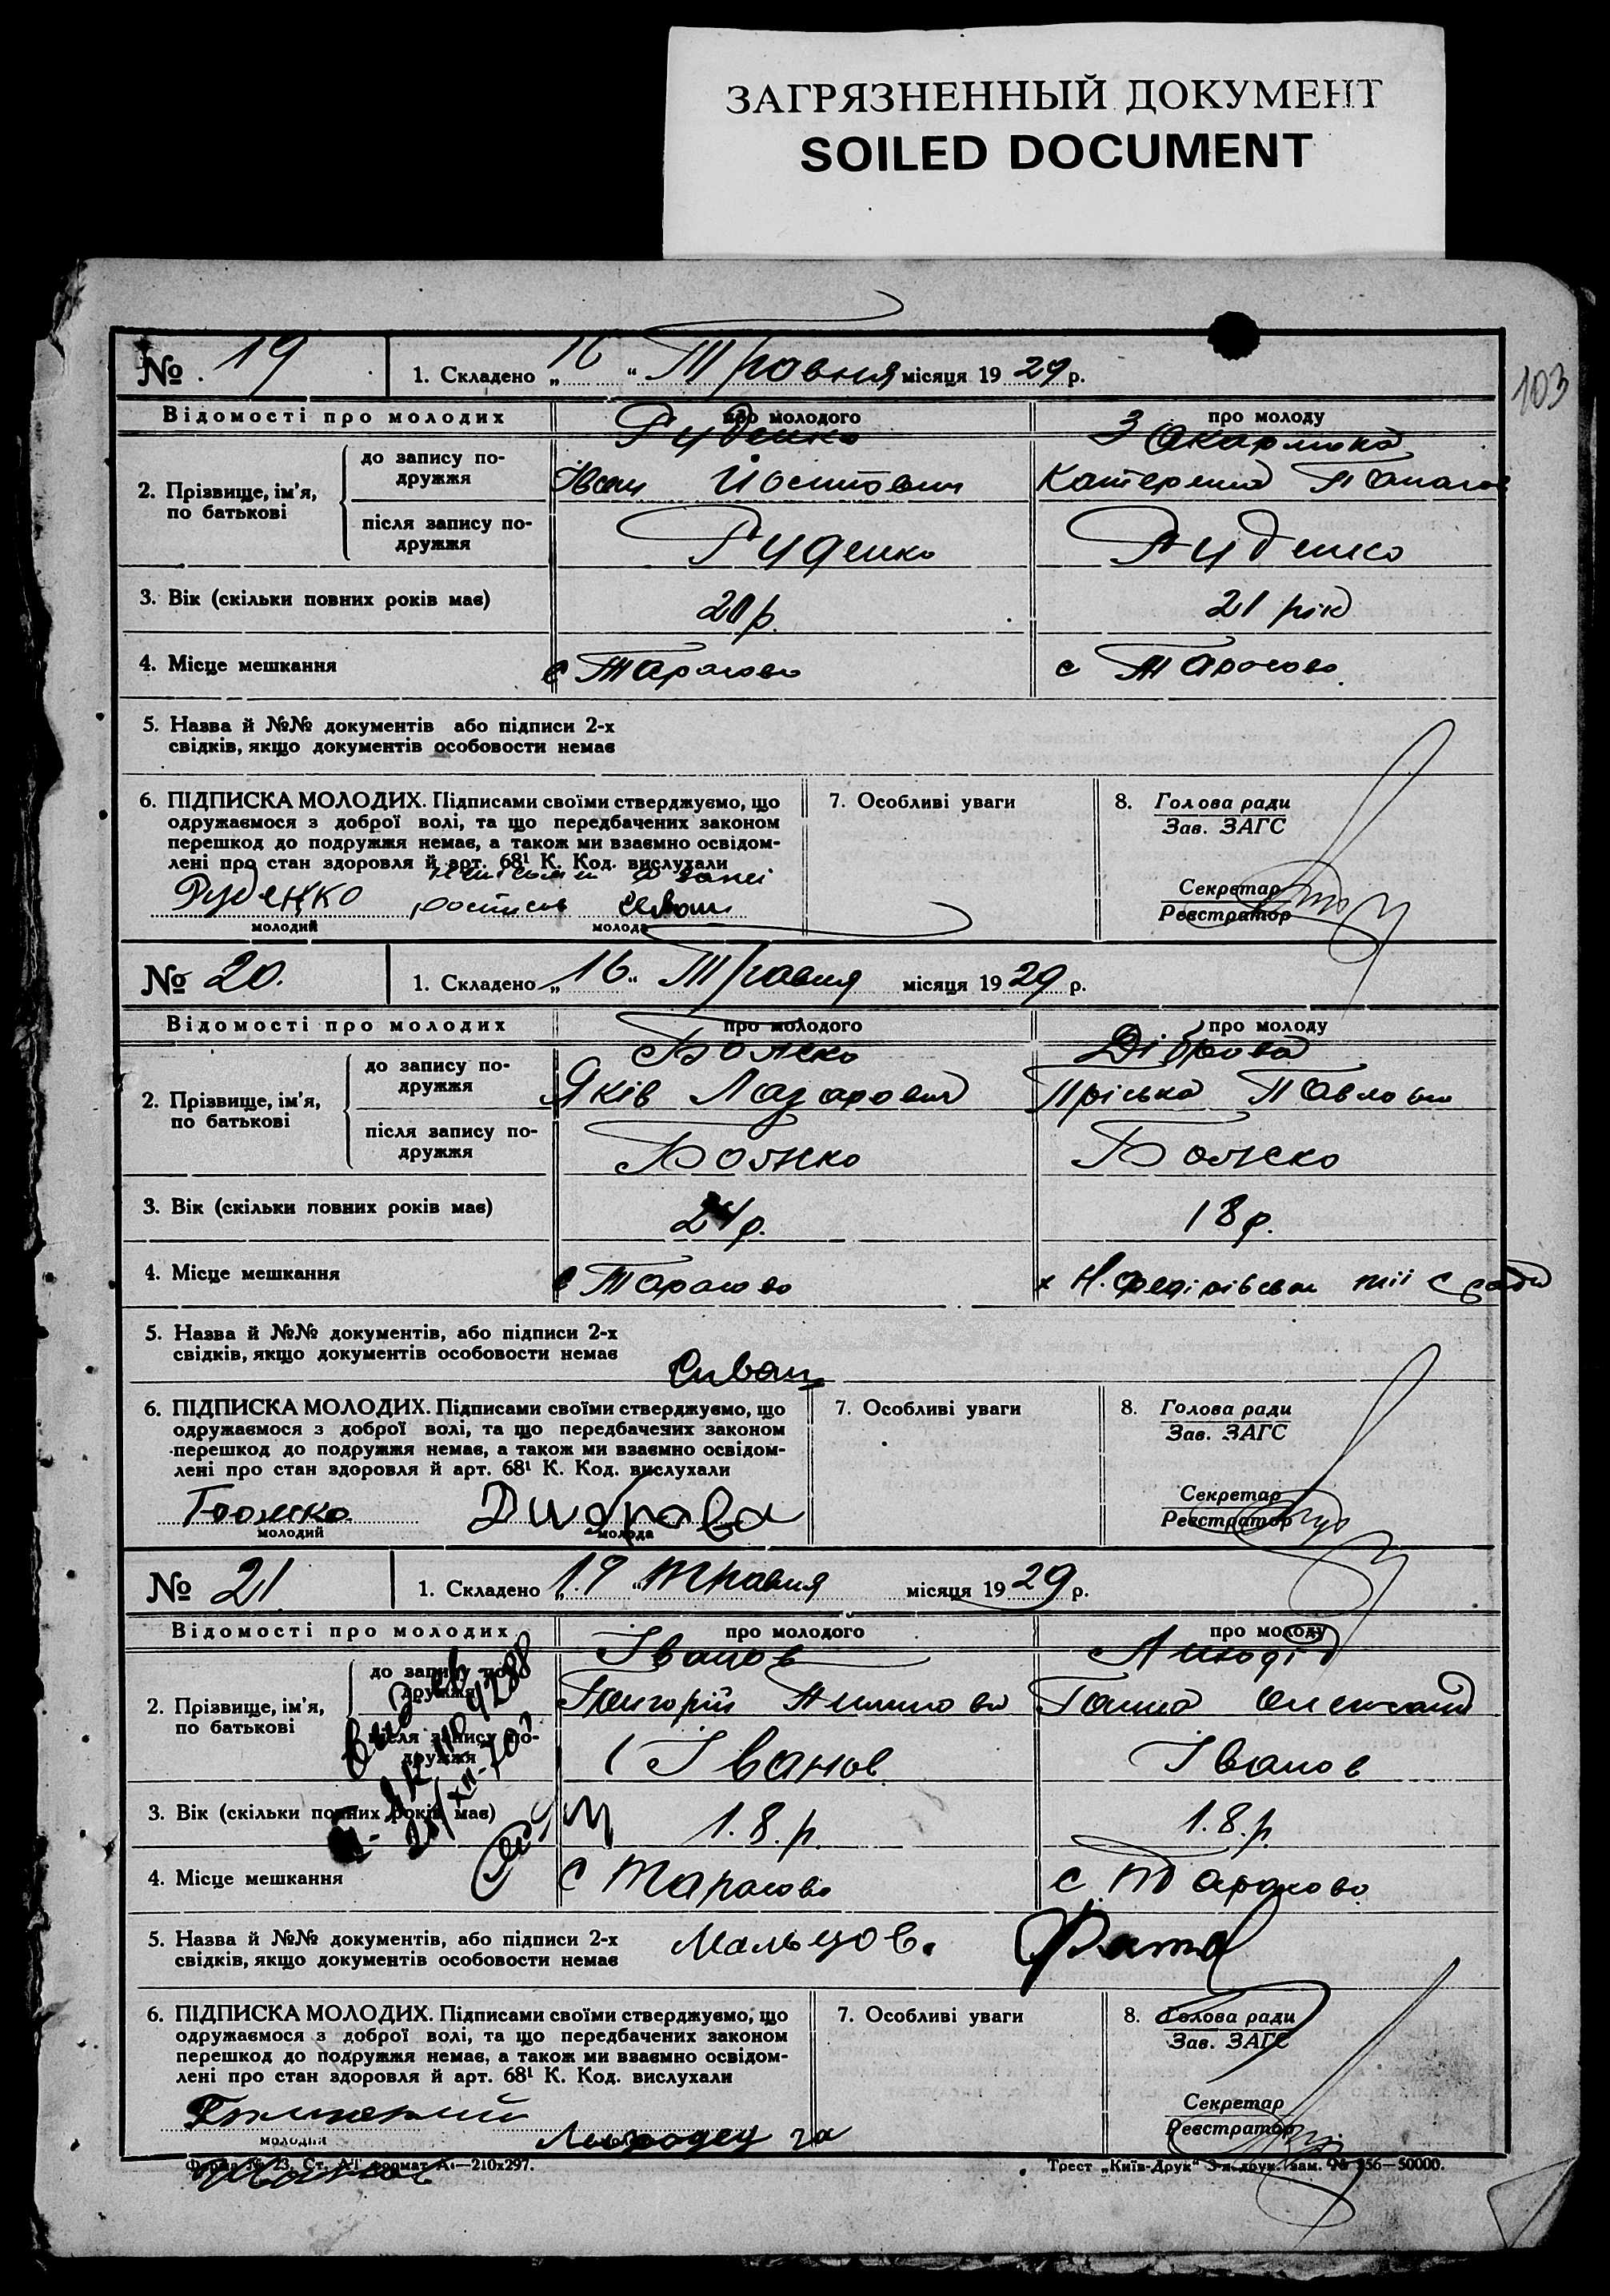 ЗАГРЯЗНЕННЫЙ ДОКУМЕНТ
SOILED DOCUMENT
103
№ 19
1. Складено „16“ Травня місяця 1929 р.
Відомості про молодих про молодого про молоду
Руденко
2. Прізвище, ім'я, по батькові
до запису подружжя
Іван Йосипович Катерина
після запису подружжя
Руденко Руденко
3. Вік (скільки повних років має) 20 р. 21 рік
4. Місце мешкання с Тарасово с Тарасово
5. Назва й №№ документів або підписи 2-х
свідків, якщо документів особовости немає
6. ПІДПИСКА МОЛОДИХ. Підписами своїми стверджуємо, що
одружаємося з доброї волі, та що передбачених законом
перешкод до подружжя немає, а також ми взаємно освідом-
лені про стан здоровля й арт. 68¹ К. Код. вислухали
Руденко
молодий молода
7. Особливі уваги
8. Голова ради
Зав. ЗАГС
Секретар
Реєстратор
№ 20.
1. Складено „16“ Травня місяця 1929 р.
Відомості про молодих про молодого про молоду
Божко Діброва
2. Прізвище, ім'я, по батькові
до запису подружжя
Яків Лазарович Пріська Павлов
після запису подружжя
Божко Божко
3. Вік (скільки повних років має) 24 р. 18 р.
4. Місце мешкання с Тарасово
5. Назва й №№ документів, або підписи 2-х
свідків, якщо документів особовости немає
6. ПІДПИСКА МОЛОДИХ. Підписами своїми стверджуємо, що
одружаємося з доброї волі, та що передбачених законом
перешкод до подружжя немає, а також ми взаємно освідом-
лені про стан здоровля й арт. 68¹ К. Код. вислухали
Божко Диброва
молодий молода
7. Особливі уваги
8. Голова ради
Зав. ЗАГС
Секретар
Реєстратор
№ 21
1. Складено „19“ Травня місяця 1929 р.
Відомості про молодих про молодого про молоду
Іванов
2. Прізвище, ім'я, по батькові
до запису подружжя
Григорій Ганна
після запису подружжя
Іванов Іванов
3. Вік (скільки повних років має) 1.8.р. 1.8.р.
4. Місце мешкання с Тарасово с Тарасово
5. Назва й №№ документів, або підписи 2-х
свідків, якщо документів особовости немає
Мальцов.
6. ПІДПИСКА МОЛОДИХ. Підписами своїми стверджуємо, що
одружаємося з доброї волі, та що передбачених законом
перешкод до подружжя немає, а також ми взаємно освідом-
лені про стан здоровля й арт. 68¹ К. Код. вислухали
молодий
7. Особливі уваги
8. Голова ради
Зав. ЗАГС
Секретар
Реєстратор
Форма № 23. Ст. АТ формат А₄—210x297.
Трест „Київ-Друк“ 3-я друк. зам. № 356—50000.